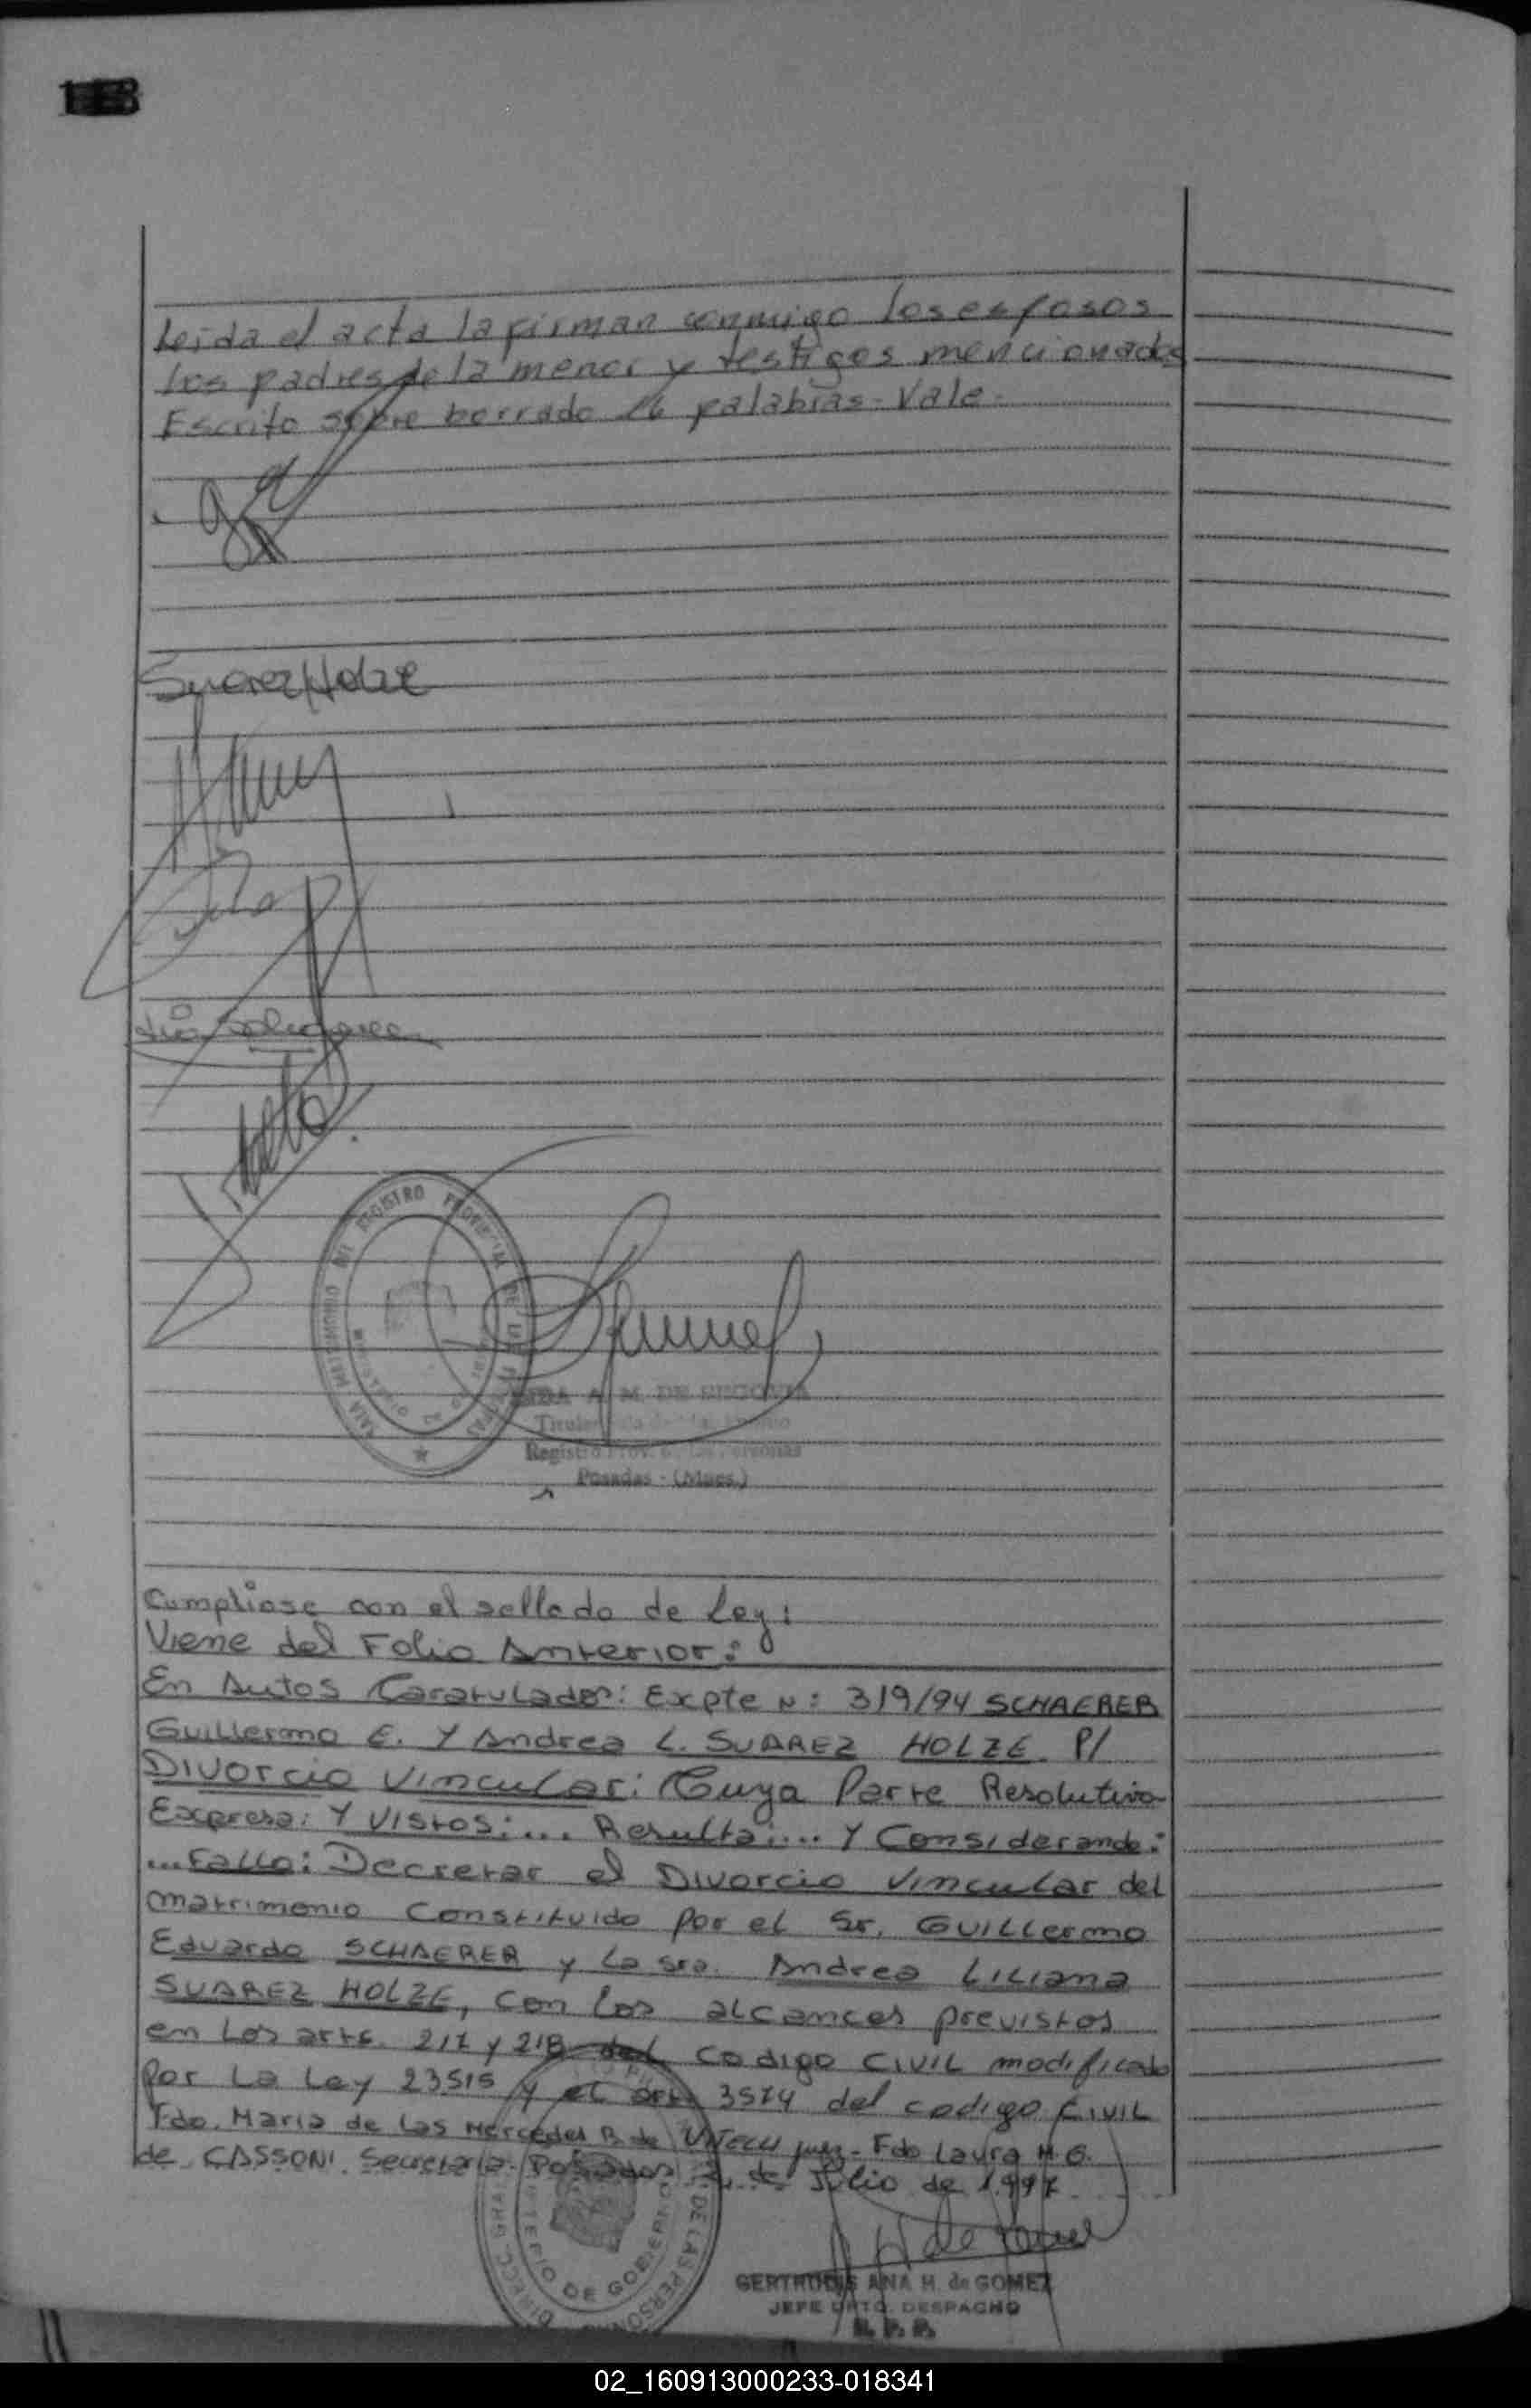 Leida el acta la firman conmigo los esposos
los padres de la menor y testigos mencionados
Escrito sobre borrado 16 palabras - Vale -
Suarez Holze
SALA MATRIMONIO DEL REGISTRO PROVINCIAL DE LAS PERSONAS
A. M. DE SEGOVIA
Titular Sala de Matrimonio
Registro Prov. de las Personas
Posadas - (Mnes.)
Cumpliose con el sellado de Ley:
Viene del Folio Anterior:
En Autos Caratulados: Expte N: 319/94 SCHAERER
Guillermo E. Y Andrea L. SUAREZ HOLZE P/
Divorcio Vincular: Cuya Parte Resolutiva
Expresa: Y Vistos:... Resulta:... Y Considerando:
...Fallo: Decretar el Divorcio Vincular del
matrimonio Constituido por el Sr. Guillermo
Eduardo SCHAERER y La Sra. Andrea Liliana
SUAREZ HOLZE, con los alcances previstos
en Los arts. 217 y 218 del Codigo Civil modificado
Por La Ley 23515 y el art. 3574 del codigo Civil
Fdo. Maria de Las Mercedes B. de juez - Fdo Laura M. G.
de CASSONI. Secretaria. Posadas de Julio de 1.997
DE LAS PERSON
MINISTERIO DE GOBIERNO
GERTRUDIS ANA H. de GOMEZ
JEFE DPTO. DESPACHO
R. P. P.
02_160913000233-018341